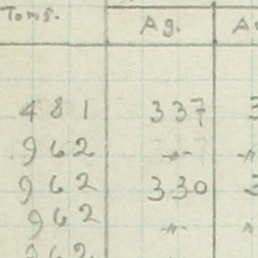 Toms. Ag. A
481 337 3
962 -"- -"
962 330 3
962 -"- "
962